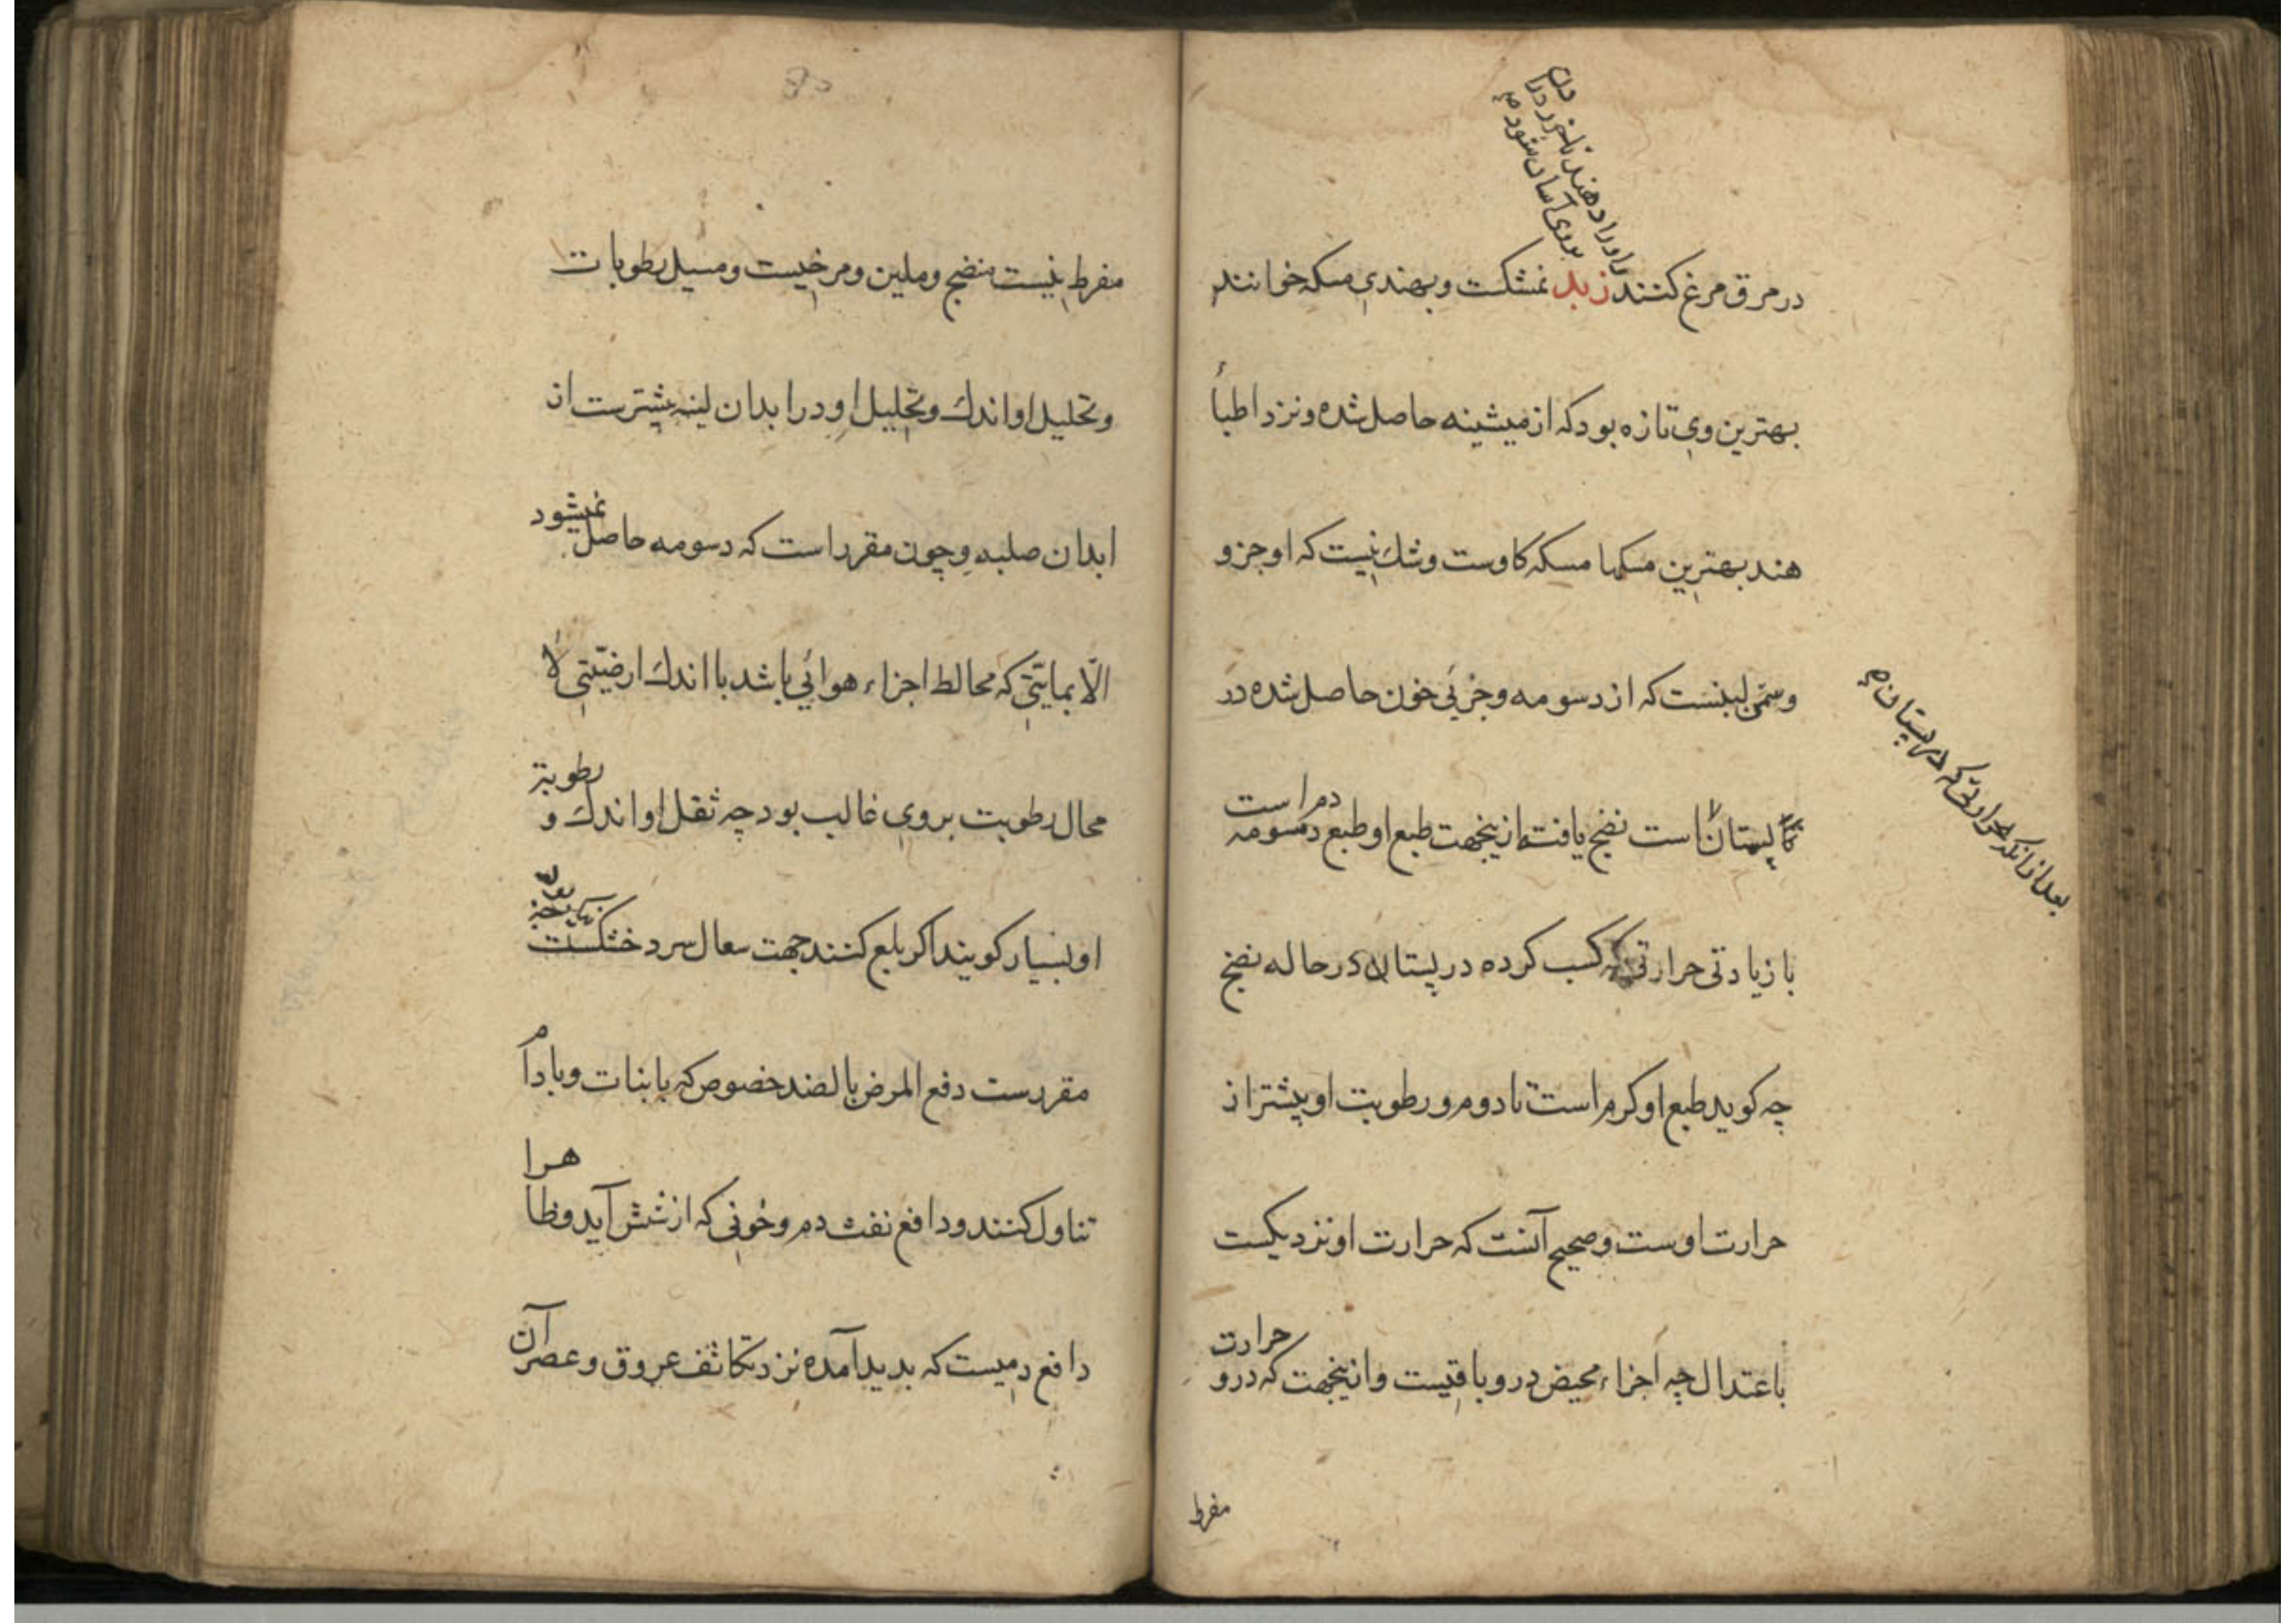 در مرق مرغ کنند زبد نمشکست و بهندی مسکه خوانند
بهترین وی تازه بود که از میشینه حاصل شده و نزد اطبأ
هند بهترین مسکها مسکه کاوست و شک نیست که او جزو
وسمن لبنست که از دسومه و جزئی خون حاصل شده در
پستان است نضج یافته ازینجهت طبع او طبع دسومه
دم است
با زیادتی حرارتی که کسب کرده در پستان در حاله نضج
چه کوید طبع او کرم است تا دوم و رطوبت او بیشتر از
حرارت اوست و صحیح آنست که حرارت او نزدیکست
باعتدال چه اجزاء محیض درو باقیست و ازینجهت که درو
حرارت
مفرط
بعد از انکه حرارتی که در پستان
مفرط نیست منضج و ملین و مرخیست و مسیل رطوبات
و تحلیل او اندک و تحلیل او در ابدان لینه بیشترست از
ابدان صلبه و چون مقرر است که دسومه حاصل
نمیشود
الّا بمایتی که مخالط اجزاء هوائی باشد با اندک ارضیّتی لا
محال رطوبت بروی غالب بود چه ثقل او اندک و
رطوبة
او بسیار کویند اکر بلع کنند جهت سعال سرد خشکست
مقررست دفع المرض بالضد خصوص که با بنات و بادام
تناول کنند و دافع نفث دم و خونی که از شش آید و ظا
هرا
دافع دمیست که بدید آمده نزد تکاثف عروق و عصر
آن